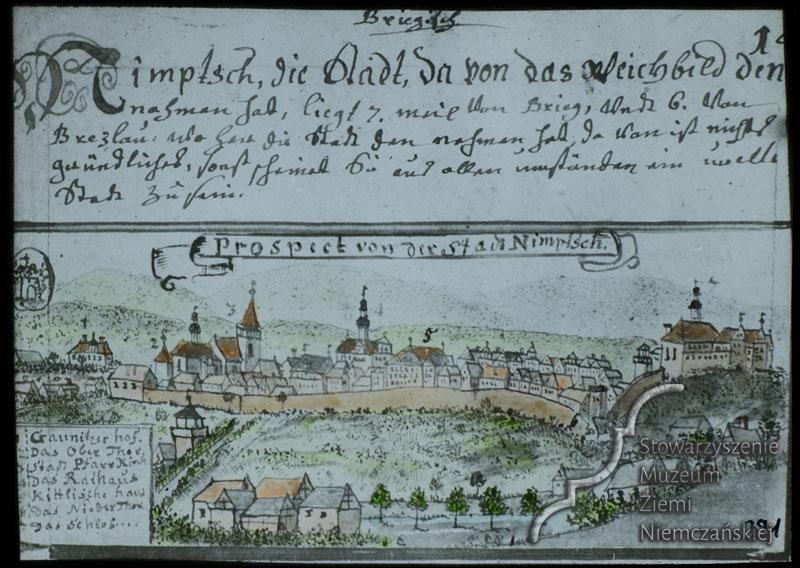 Briegisch
Nimptsch, die Stadt, da von das Weichbild den
nahmen hat, liegt 7. meil von Brieg, undt 6. von
Breßlau, wo her die Stadt den nahmen hat, da von ist nichts
gründliches, sonst scheinet Sie aus allen umständen ein uralte
Stadt zu sein.
Prospect von der Stadt Nimptsch.
1
2
3
4
5
Craunitzer hof.
Das Ober Thor
Stadt Pfarr Kirch
Das Rathauß
Kittlische haus
Das Nieder Thor
Das Schlos....
Stowarzyszenie
Muzeum
Ziemi
Niemczańskiej